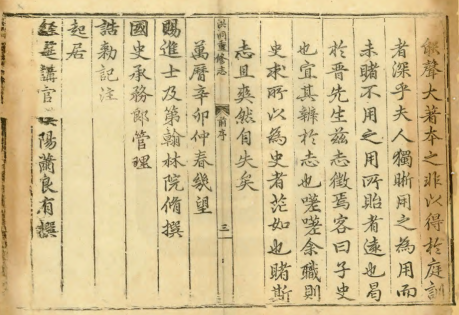 能聲大著本之非以得於庭訓
者深乎夫人獨晰用之為用而
未睹不用之用所貽者遠也昌
於晉先生茲志徵焉客曰子史
也宜其辨於志也嗟嗟余職則
史求所以為史者茫如也睹斯
志且爽然自失矣
洪洞重修志
前序
三
萬曆辛卯仲春幾望
賜進士及第翰林院脩撰
國史承務郎管理
誥勅記注
起居
經筵講官
陽蕭良有撰